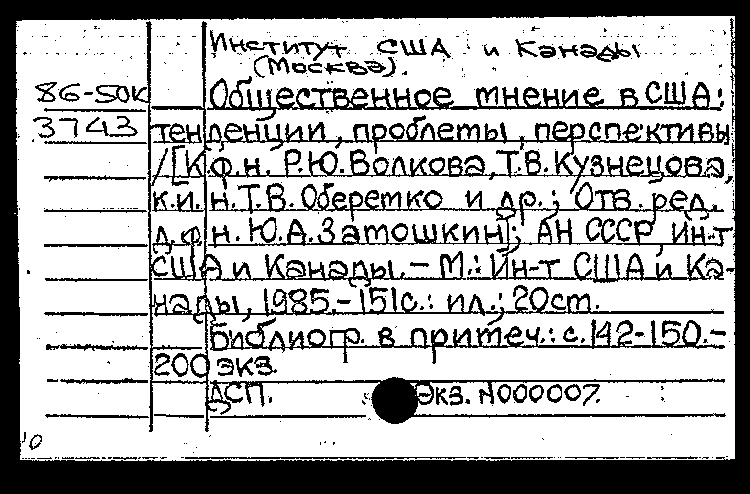 Институт США и Канады
(Москва).
86-50к
Общественное мнение в США:
3743
тенденции, проблеты, перспективы
/[К.ф.н. Р.Ю. Волкова, Т.В. Кузнецова,
к.и.н. Т.В. Оберемко и др.; Отв. ред.
д.ф.н. Ю.А. Затошкин]; АН СССР, Ин-т
США и Канады. - М.: Ин-т США и Ка-
нады, 1985. - 151с.: ил.; 20ст.
Библиогр. в притеч.: с.142-150. -
200 экз.
ДСП. Экз. N000007.